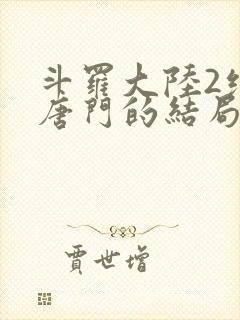 斗羅大陸2絕
唐門的結局
賈世增